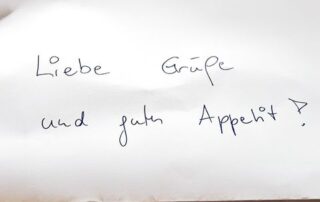 Liebe Grüße
und guten Appetit!